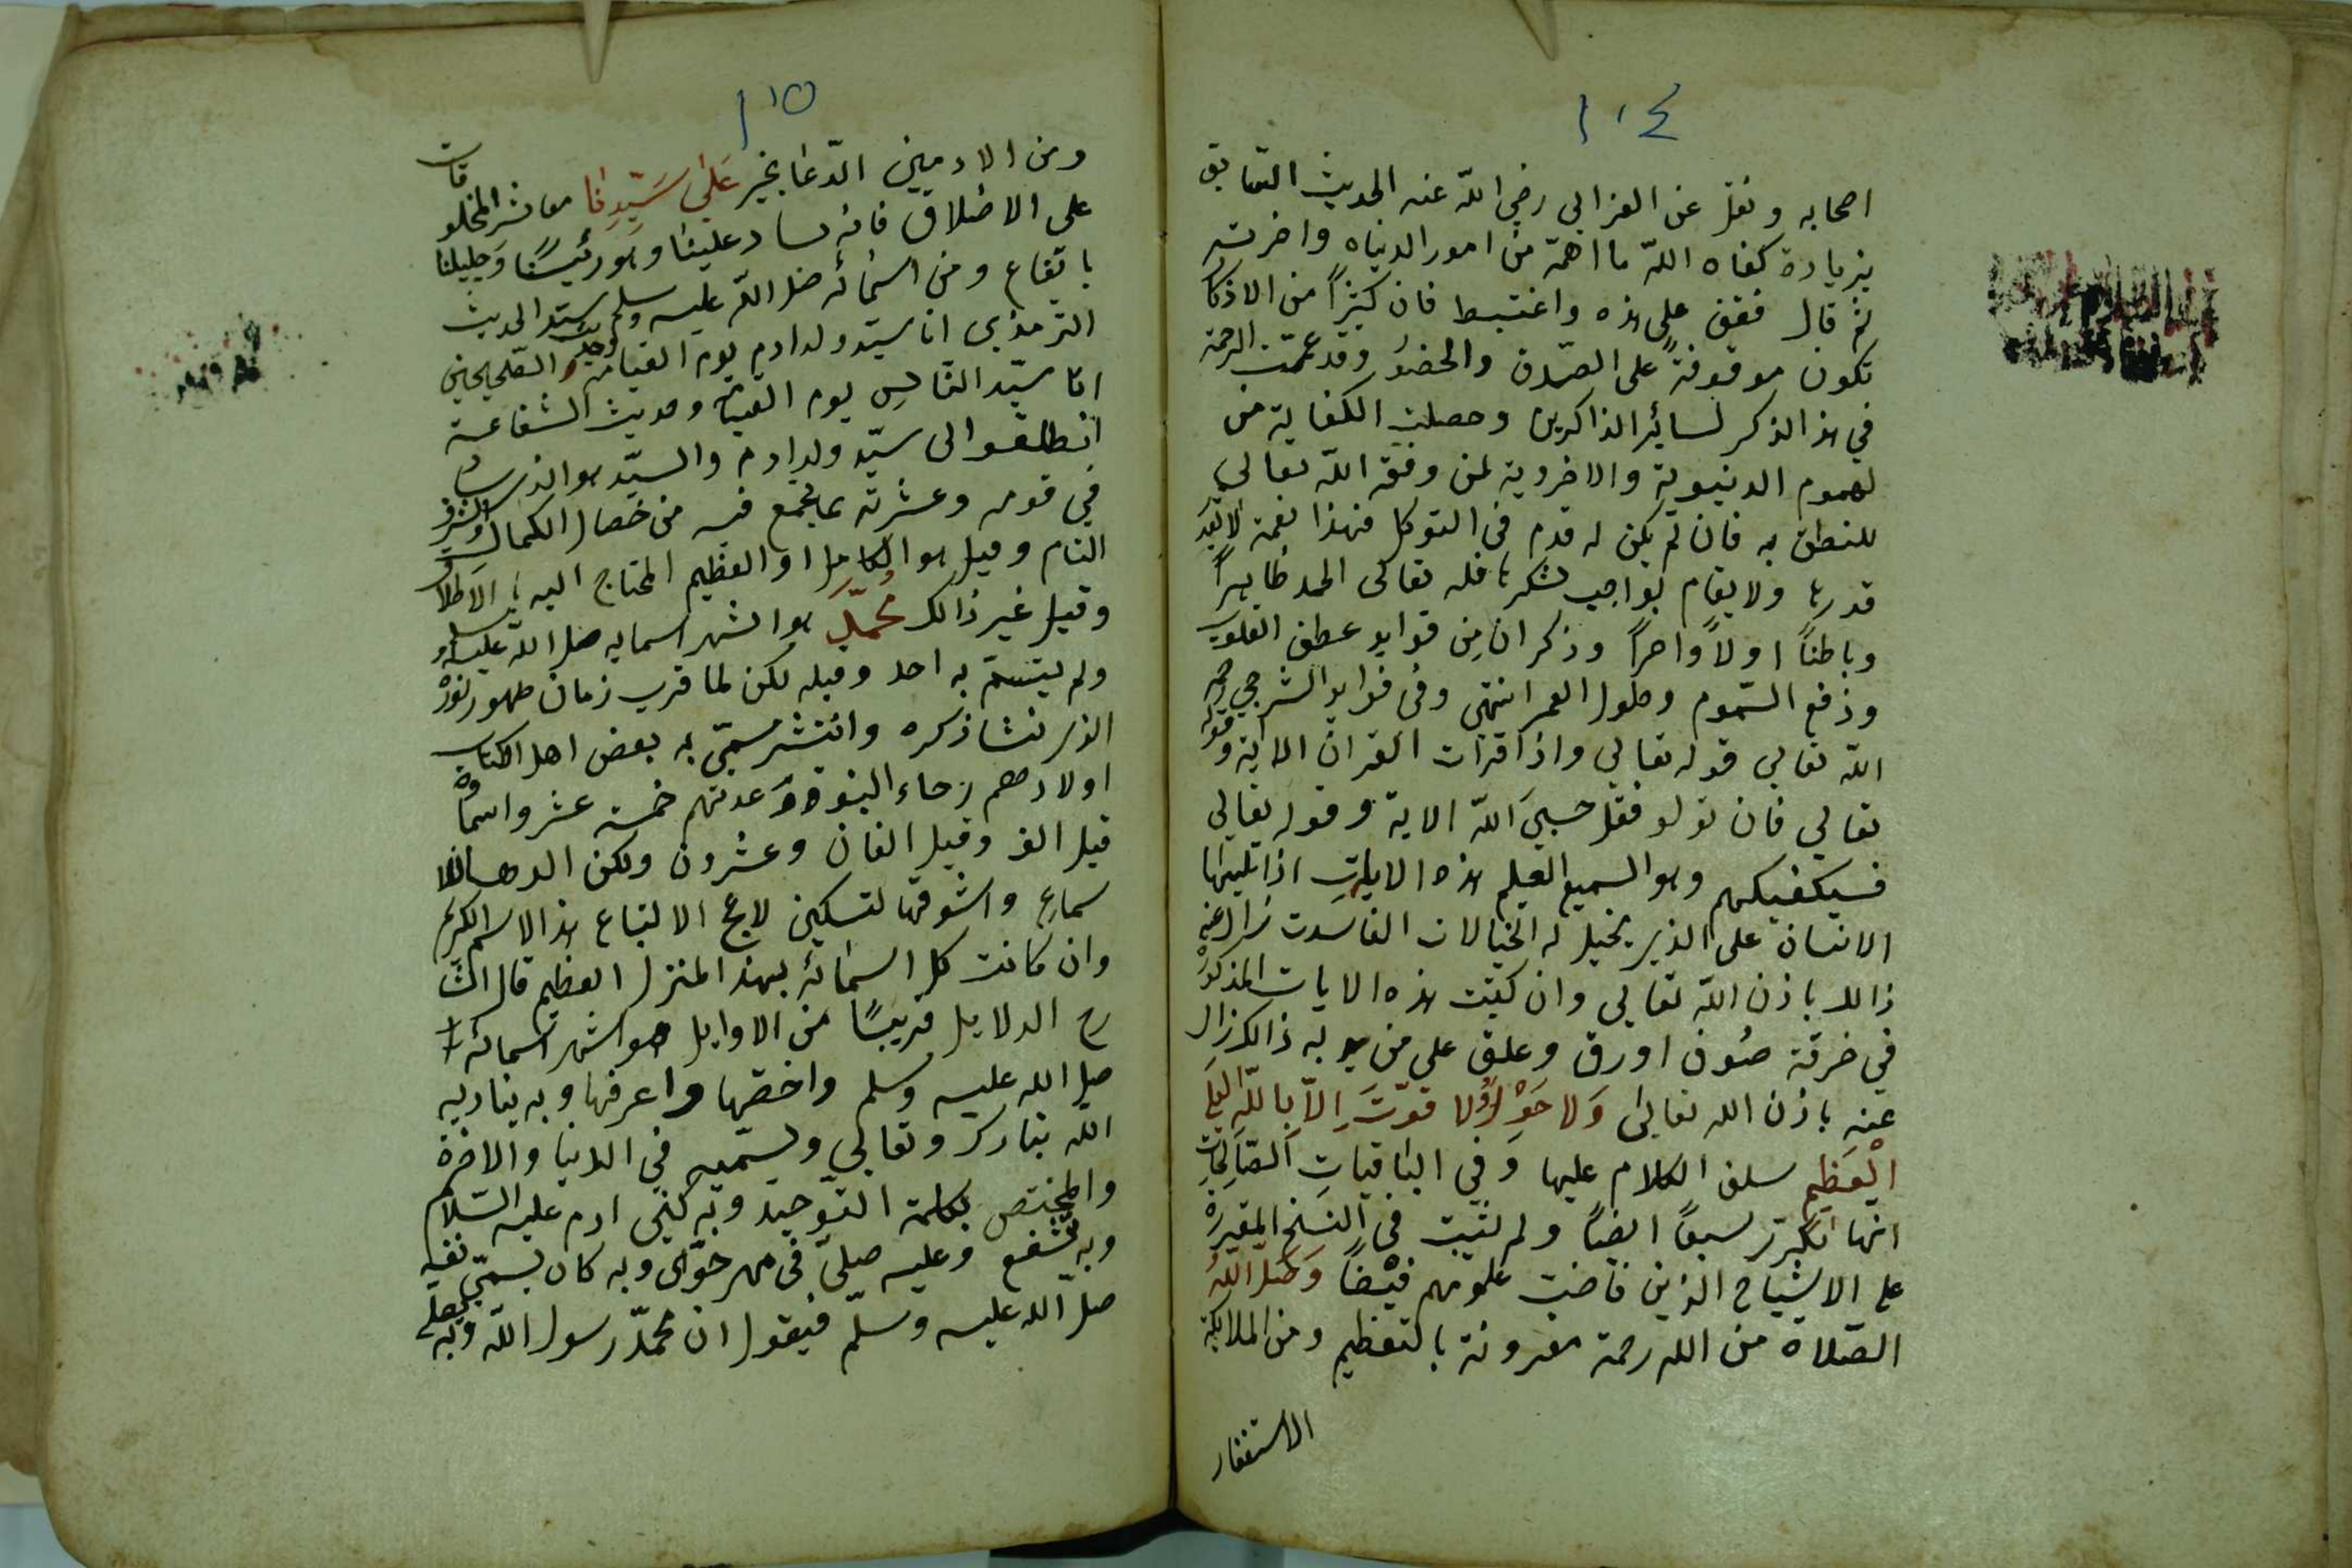 ١٠٤
اصحابه ونقل عن الغزالي رضي الله عنه الحديث السابق
بزيادة كفاه الله ما اهمه من امور الدنياه واخرته
ثم قال فقف على هذه واغتبط فان كثيرًا من الاذكار
تكون موقوفةً على الصدق والحضور وقد عمّت الرحمة
في هذا الذكر لسائر الذاكرين وحصلت الكفاية من
لهموم الدنيوية والاخروية لمن وفقه الله تعالى
للنطق به فان لم يكن له قدم في التوكل فهذا نعمة لا يقدر
قدرها ولا يقام بواجب شكرها فله تعالى الحمد ظاهرًا
وباطنًا اولًا واخرًا وذكر ان مِن فوايد عطف القلوب
وذفع السّموم وطول العمر انتهى وفي فوايد الشرجي رحمه
الله تعالى قوله تعالى واذا قرات القران الاية وقوله
تعالى فان تولو فقل حسبيَ الله الاية وقوله تعالى
فسيكفيكهم وهو السميع العليم هذه الايات اذا تليها
الانسان على الذي يخيل له الخيالات الفاسدت زال عنه
ذالك باذن الله تعالى وان كتبت هذه الايات المذكورة
في خرقة صُوف او رق وعلق على من به ذالك زال
عنه باذن الله تعالى وَلا حَوْلَ وَلا قوّتَ اِلاّ بِاللّهِ العَلِيِّ
الْعَظِيمِ سلف الكلام عليها وَفي الباقياتِ الصّالحات
انها تكررت سبعًا ايضًا ولم تثبت في النسخ المقروة
على الاشياخ الذين فاضت علومهم فيْضًا وَصَلّى اللّهُ
الصّلاة من الله رحمة مقرونة بالتعظيم ومن الملايكة
الاستغفار
١٠٥
ومن الادميين الدّعا بخير عَلىٰ سَيّدِنا معاشر المخلوقات
على الاطلاق فانه ساد علينا وهو رئيسُنا وَجليلنا
باتفاع ومن اسمائه صلى الله عليه وسلم سيّد الحديث
الترمذي انا سيّد ولد ادم يوم القيامة وحديث الصّحيحين
انا سيّد النّاسِ يوم القيمة وحديث الشفاعة
انطلقوا الى سيّد ولد ادم والسيّد هو الذي ساد
في قومه وعشرته بما يجمع فيه من خصال الكمال والشرف
التام وقيل هو الكامل او العظيم المحتاج اليه بالاطلاق
وقيل غير ذالك مُحمّدٍ هو اشهر اسمايه صلى الله عليه وسلم
ولم يتسمّ به احد وقبله لكن لما قرب زمان ظهور نوره
الذي نشا ذكره وانتشر سمّي به بعض اهل الكتاب
اولادهم رجاء النبوة وَعدتهم خمسة عشر واسماؤه
قيل الف وقيل الفان وعشرون ولكن الدهانا
سماع واشوقها لتسكين لاعج الالتياع هذ الاسم الكريم
وان كانت كل اسمائه بهذ المنزل العظيم قال الشا
رح الدلايل قريبًا من الاوايل هو اشهر اسمائه
صلى الله عليه وسلم واخصّها واعرفها وبه يناديه
الله تبارك وتعالى ويسميه في الدنيا والاخرة
والمختص بكلمة التوحيد وبه كني ادم عليه السّلام
وبه تشفع وعليه صلىّ في مهر حوّى وبه كان يسمّي نفسه
صلى الله عليه وسلّم فيقول ان محمّد رسول الله وبه يصلي